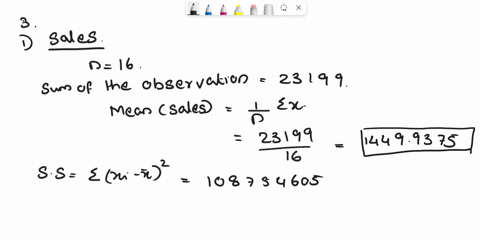 3.
1) Sales.
n=16.
Sum of the observation = 23199.
Mean (sales) = 1/n Σx.
= 23199/16 = 1449.9375
S.S = Σ(xi - x̄)² = 108734605